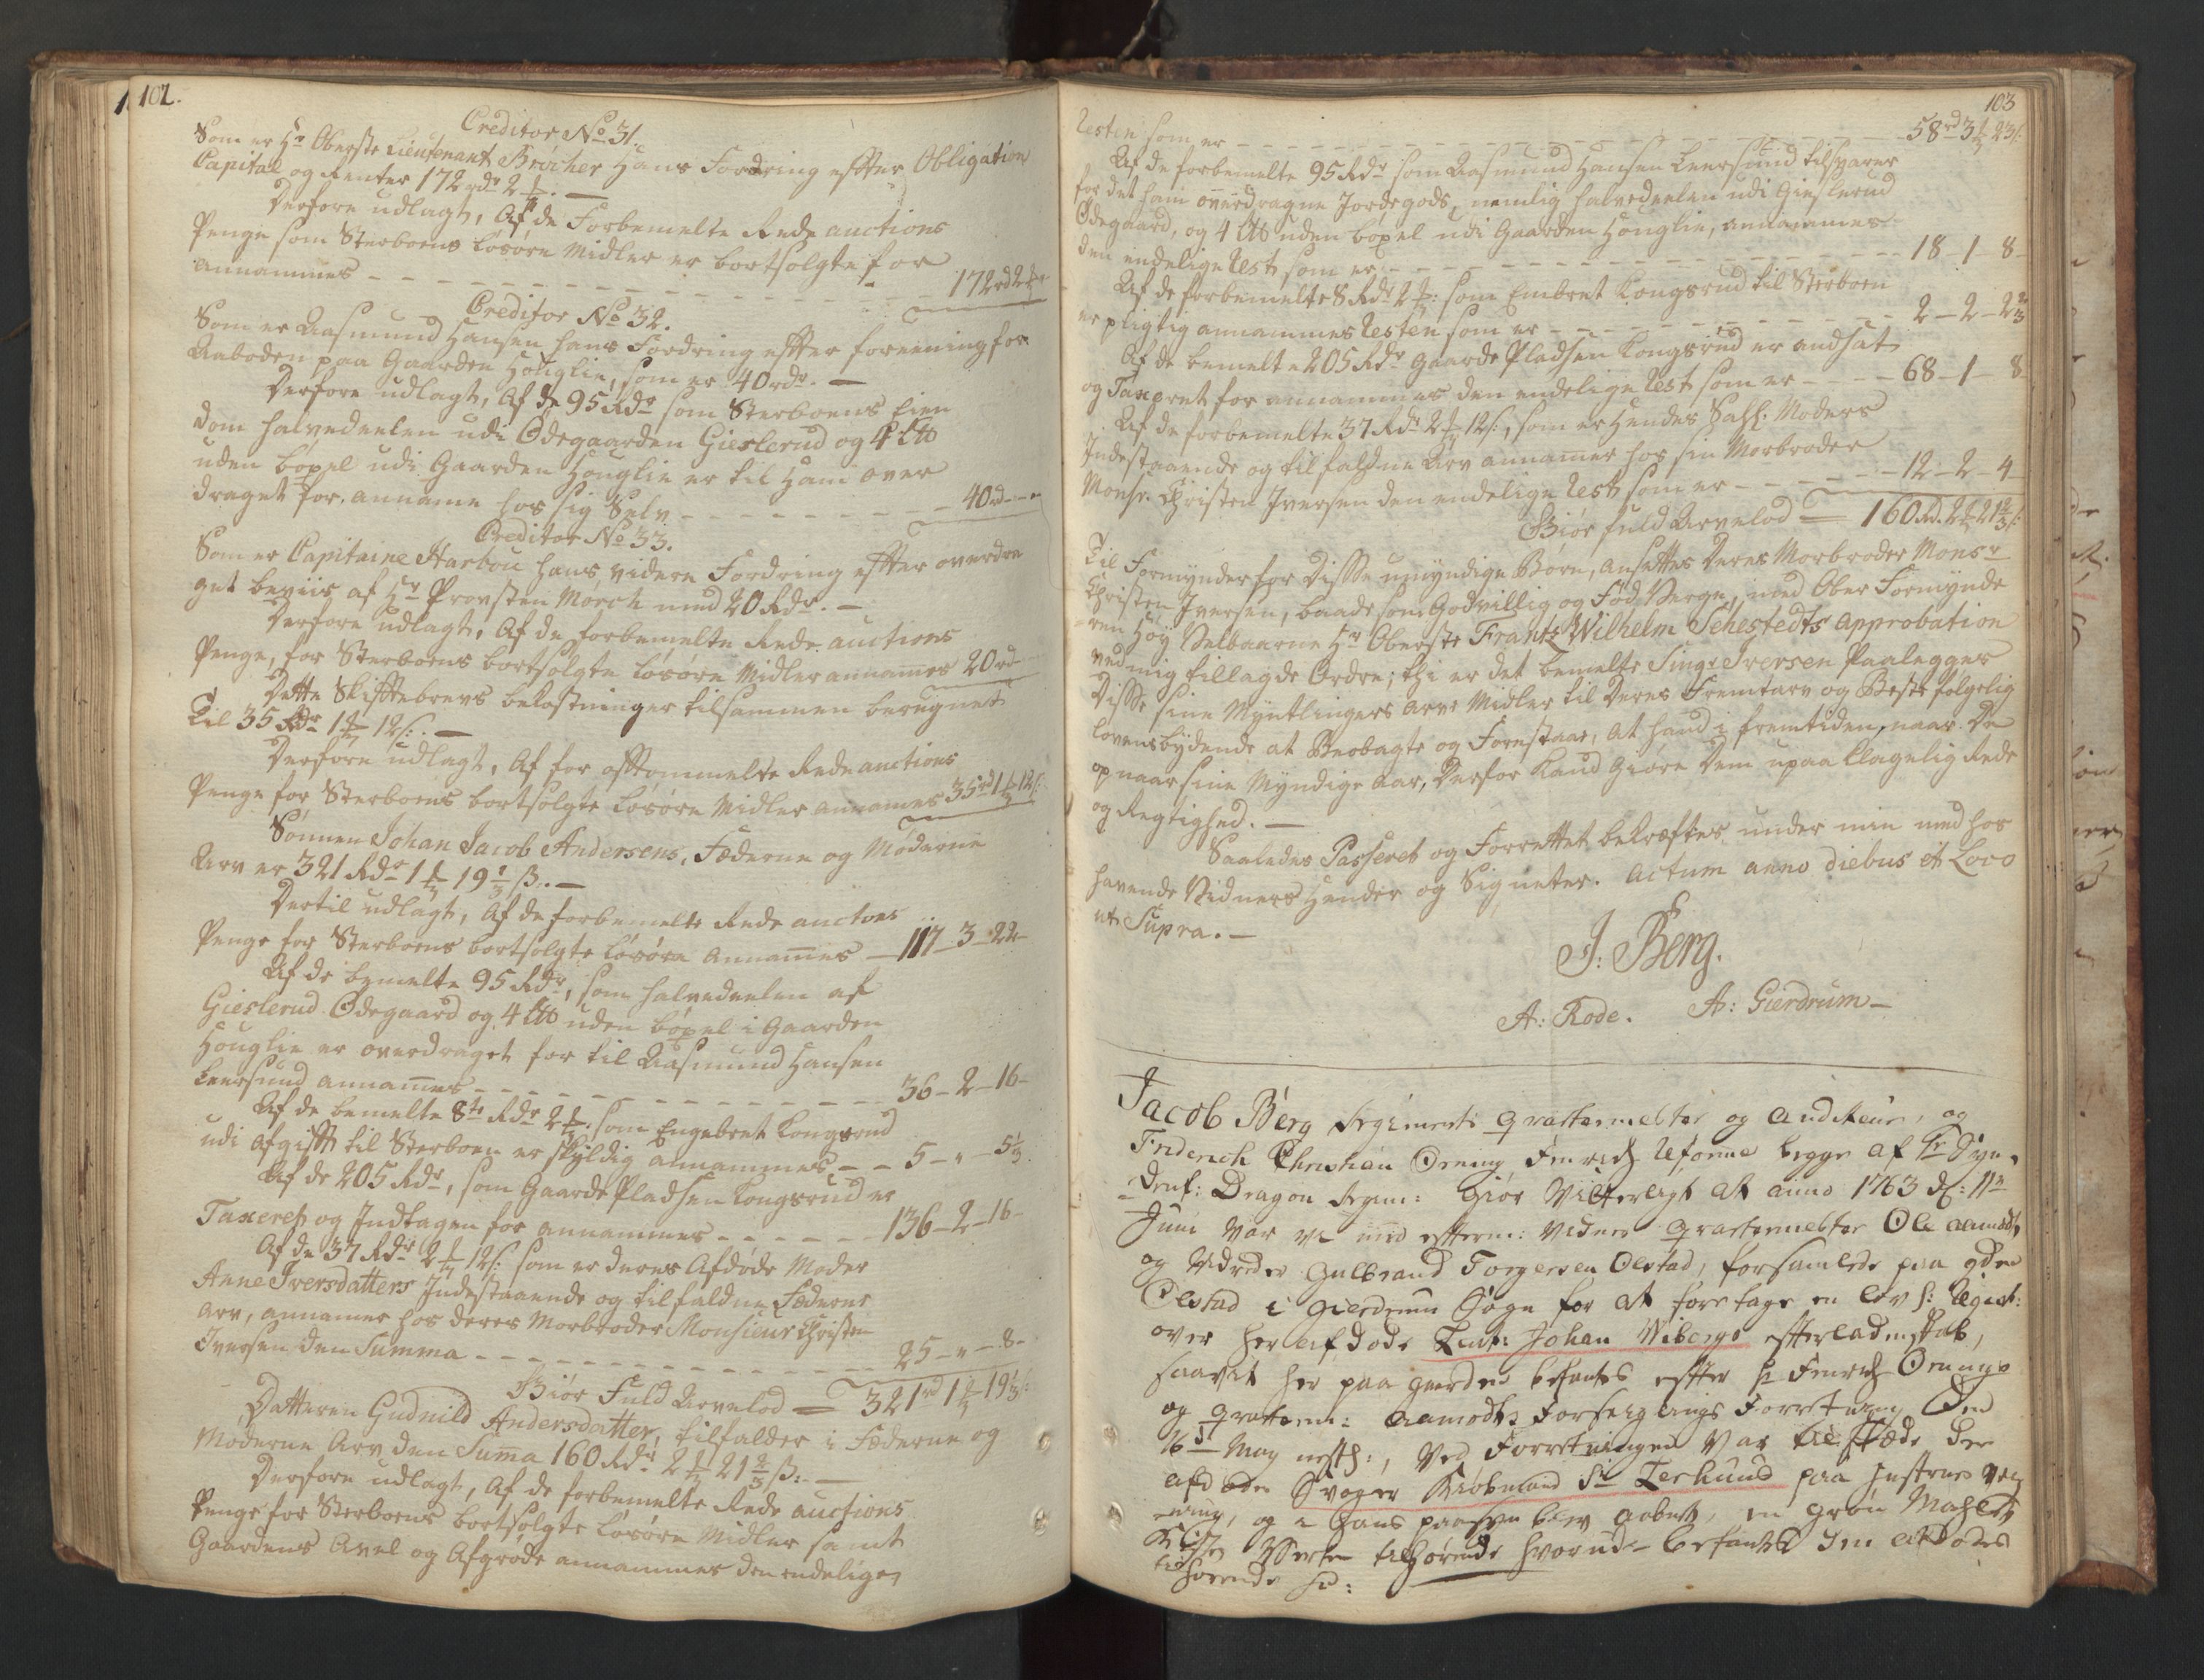 102.
Creditor No 31.
Som er Hr Oberste Lieutenant Bröcher Hans Fordring effter Obligation
Capital og Renter 172 rdr 2 ƒ. —
Derfore udlagt, Af de Forbemelte Rede auctions
Penge som Sterboens Løsøre Midler er bortsolgte for
annammes - - - 172 rd 2 ƒ
Creditor No 32.
Som er Aasmund Hansen hans Fordring effter foreening for
Aaboden paa Gaarden Houglie, som er 40 rdr. —
Derfore udlagt, Af de 95 Rdr som Sterboens Eien
dom halvedeelen udi Ødegaarden Gieslerud og 4 Lb
uden bøxel udi Gaarden Houglie er til Ham over
draget for. anname hos sig Selv - - - 40 rd - -
Creditor No 33.
Som er Capitaine Harbou hans videre Fordring effter overdra
get beviis af Hr Provsten Morch med 20 Rdr. —
Derfore udlagt, Af de forbemelte Rede auctions
Penge, for Sterboens bortsolgte Løsøre Midler annames 20 rd
Dette Skifftebrevs bekostninger tilsammen beregnet
Til 35 Rdr 1 ƒ 12 s. —
Derfore udlagt, Af for offtommelte Rede auctions
Penge for Sterboens bortsolgte Løsøre Midler annames 35 rd 1 ƒ 12 s:
Sönnen Johan Jacob Andersens, Fæderne og Møderne
Arv er 321 Rdr 1 ƒ 19 1/3 ß. —
Dertil udlagt, Af de forbemelte Rede auctons
Penge for Sterboens bortsolgte Løsøre Annam̄es — 117 - 3 - 22 -
Af de bemelte 95 Rdr, som halvedeelen af
Gieslerud Ødegaard og 4 Lb uden bøxel i Gaarden
Houglie er overdraget for til Aasmund Hansen
Leersund annam̄es - - - 36 - 2 - 16 -
Af de bemelte 8te Rdr 2 ƒ. som Engebret Kongsrud
udi Afgifft til Sterboen er skyldig annammes - - 5 - " - 5 1/3
Af de 205 Rdr, som Gaarde Pladsen Kongsrud er
Taxeret og Indtagen for annammes - - - 136 - 2 - 16 -
Af de 37 Rdr 2 ƒ 12 s: som er deres Afdøde Moder
Anne Iversdatters Indestaaende og tilfaldne Fæderne
Arv, annamer hos deres Morbroder Monsieur Christen
Iversen den Summa - - - 25 - " - 8 -
Giør Fuld Arvelod = 321 rd 1 ƒ 19 1/3 s:
Datteren Gudnild Andersdatter, tilfalder i Fæderne og
Møderne Arv den Sum̄a 160 Rdr 2 ƒ 21 2/3 ß. —
Derfore udlagt, Af de forbemelte Rede auctions
Penge for Sterboens bortsolgte Løsøre Midler samt
Gaardens Avel og Afgrøde annammes den endelige
103
Resten som er - - - 58 rd 3 ƒ 23 s:
Af de forbemelte 95 Rdr som Aasmund Hansen Leersund tilsvarer
for det ham overdragne Jordegods, nemlig halvedeelen udi Gieslerud
Ødegaard, og 4 Lb uden bøxel udi Gaarden Houglie, annammes
den endelige Rest som er - - - 18 - 1 - 8 -
Af de forbemelte 8 Rdr 2 ƒ: som Embret Kongsrud til Sterboen
er pligtig annammes Resten som er - - - 2 - 2 - 2 2/3
Af de bemelte 205 Rdr Gaarde Pladsen Kongsrud er andsat
og Taxeret for annammes den endelige Rest som er - - - 68 - 1 - 8
Af de forbemelte 37 Rdr 2 ƒ 12 s:, som er Hendes Sahl: Moders
Indestaaende og tilfaldne Arv annamer hos sin Morbroder
Monsr. Christen Iversen den endelige Rest som er - - - 12 - 2 - 4
Giør fuld Arvelod = 160 Rd. 2 ƒ 21 2/3 s:
Til Formynder for Disse umyndige Børn, ansettes Deres Morbroder Monsr
Christen Iversen, baade som Godvillig og Fød Verge, med Ober Formynde
ren Høy Velbaarne Hr Oberste Frantz Wilhelm Sehestedts Approbation
ved mig tillagde Ordre; thi er det bemelte Singr Iversen Paalegger
Disse sine Myntlingers Arve Midler til Deres Fremtarv og Beste følgelig
Lovens bydende at Beobagte og Forestaae, At hand i fremtiden, naar De
opnaar sine Myndige Aar, Derfor kand giøre Dem upaaklagelig Rede
og Regtighed. —
Saaledes Passeret og Forrettet bekræftes under min med hos
havende Vidners Hender og Signeter. Actum anno diebus et Loco
ut Supra. —
J: Berg.
A: Rode. A: Gierdrum —
Jacob Berg Regiments qvartermester og auditeur, og
Friderich Christian Orning Fenrich Reforme begge af Hr
Dragon Regim: Giør Vitterligt At anno 1763 d: 11te
Juni var vi med effterm: Vidner qvartermester Ole aamodt,
og Udreder Gulbrand Torgersen Olstad, forsamlede paa gden
Olstad i Gierdrum Sogn for at foretage en lov f: Regist:
over her afdøde Leut: Johan Wibergs effterladenskab,
saavit her paa gaarden befantes effter hr Fenrich Ornings
og qvarterm: Aamodts Forseiglings Forretning Den
16de May nesth:, Ved Forretningen var tilstæde den
afdødes Svoger Kiøbmand Sr Terkuus paa Hustrues veg
, og i hans paasyn blev aabnet, en grøn Mahlet
Kiste tilhørende hvorudi befantes Den afdødes
tilhørende